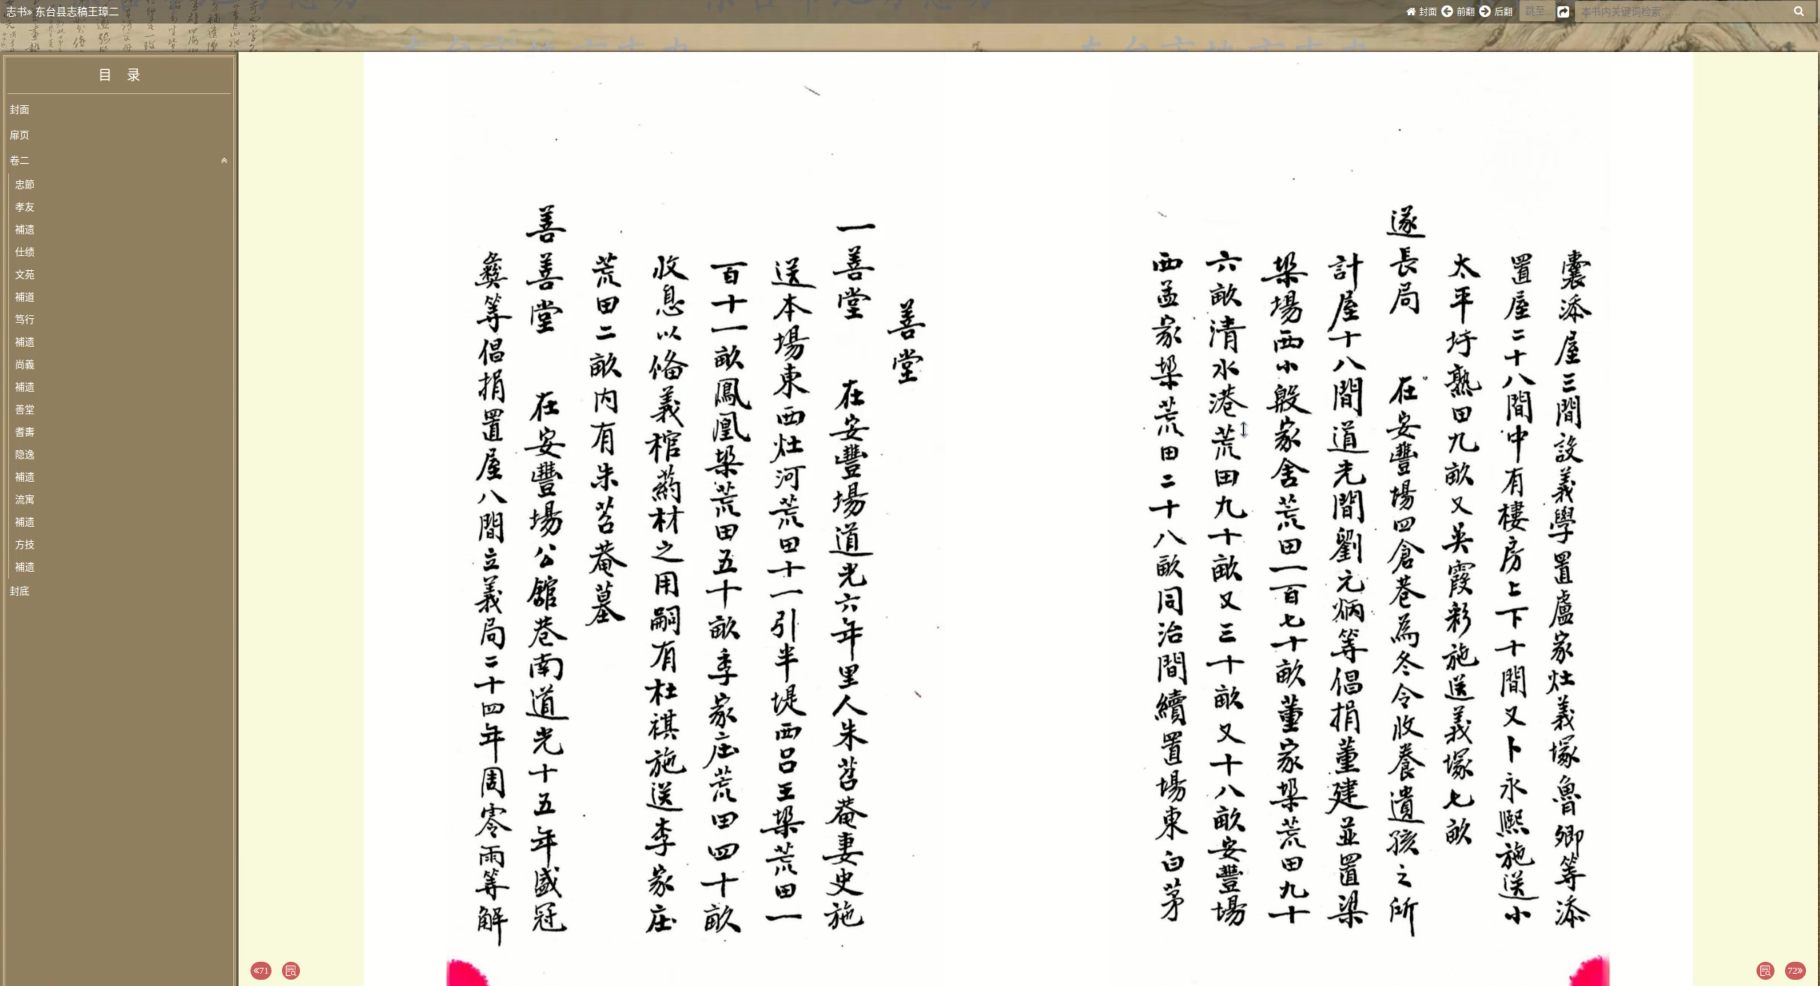 志书» 东台县志稿王璋二
封面
前翻
后翻
跳至...
本书内关键词检索......
目 录
封面
扉页
卷二
忠節
孝友
補遗
仕绩
文苑
補道
笃行
補遗
尚義
補遗
善堂
耆壽
隐逸
補遗
流寓
補遗
方技
補遗
封底
囊添屋三間設義學置盧家灶義塚魯卿等添
置屋二十八間中有樓房上下十間又卜永熙施送小
太平圩熟田九畝又吳霞彩施送義塚七畝
遂長局 在安豐場四倉巷為冬令收養遺孩之所
計屋十八間道光間劉元炳等倡捐董建並置梁
垛場西小殷家舍荒田一百七十畝董家垛荒田九十
六畝清水港荒田九十畝又三十畝又十八畝安豐場
西孟家垛荒田二十八畝同治間續置場東白茅
善堂
一善堂 在安豐場道光六年里人朱苕菴妻史施
送本場東西灶河荒田十一引半堤西吕王垛荒田一
百十一畝鳳凰垛荒田五十畝季家庄荒田四十畝
收息以俻義棺葯材之用嗣有杜祺施送李家庄
荒田二畝内有朱苕菴墓
善善堂 在安豐場公舘巷南道光十五年盛冠
彝等倡捐置屋八間立義局二十四年周零雨等解
«71
72»